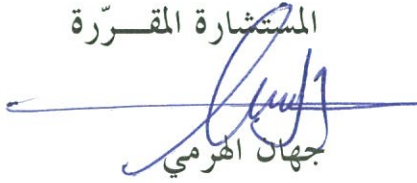 المستشارة المقـــرّرة
جهان الهرمي